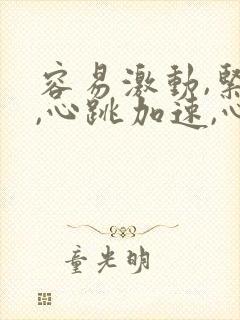 容易激動,緊
,心跳加速,心
童光明